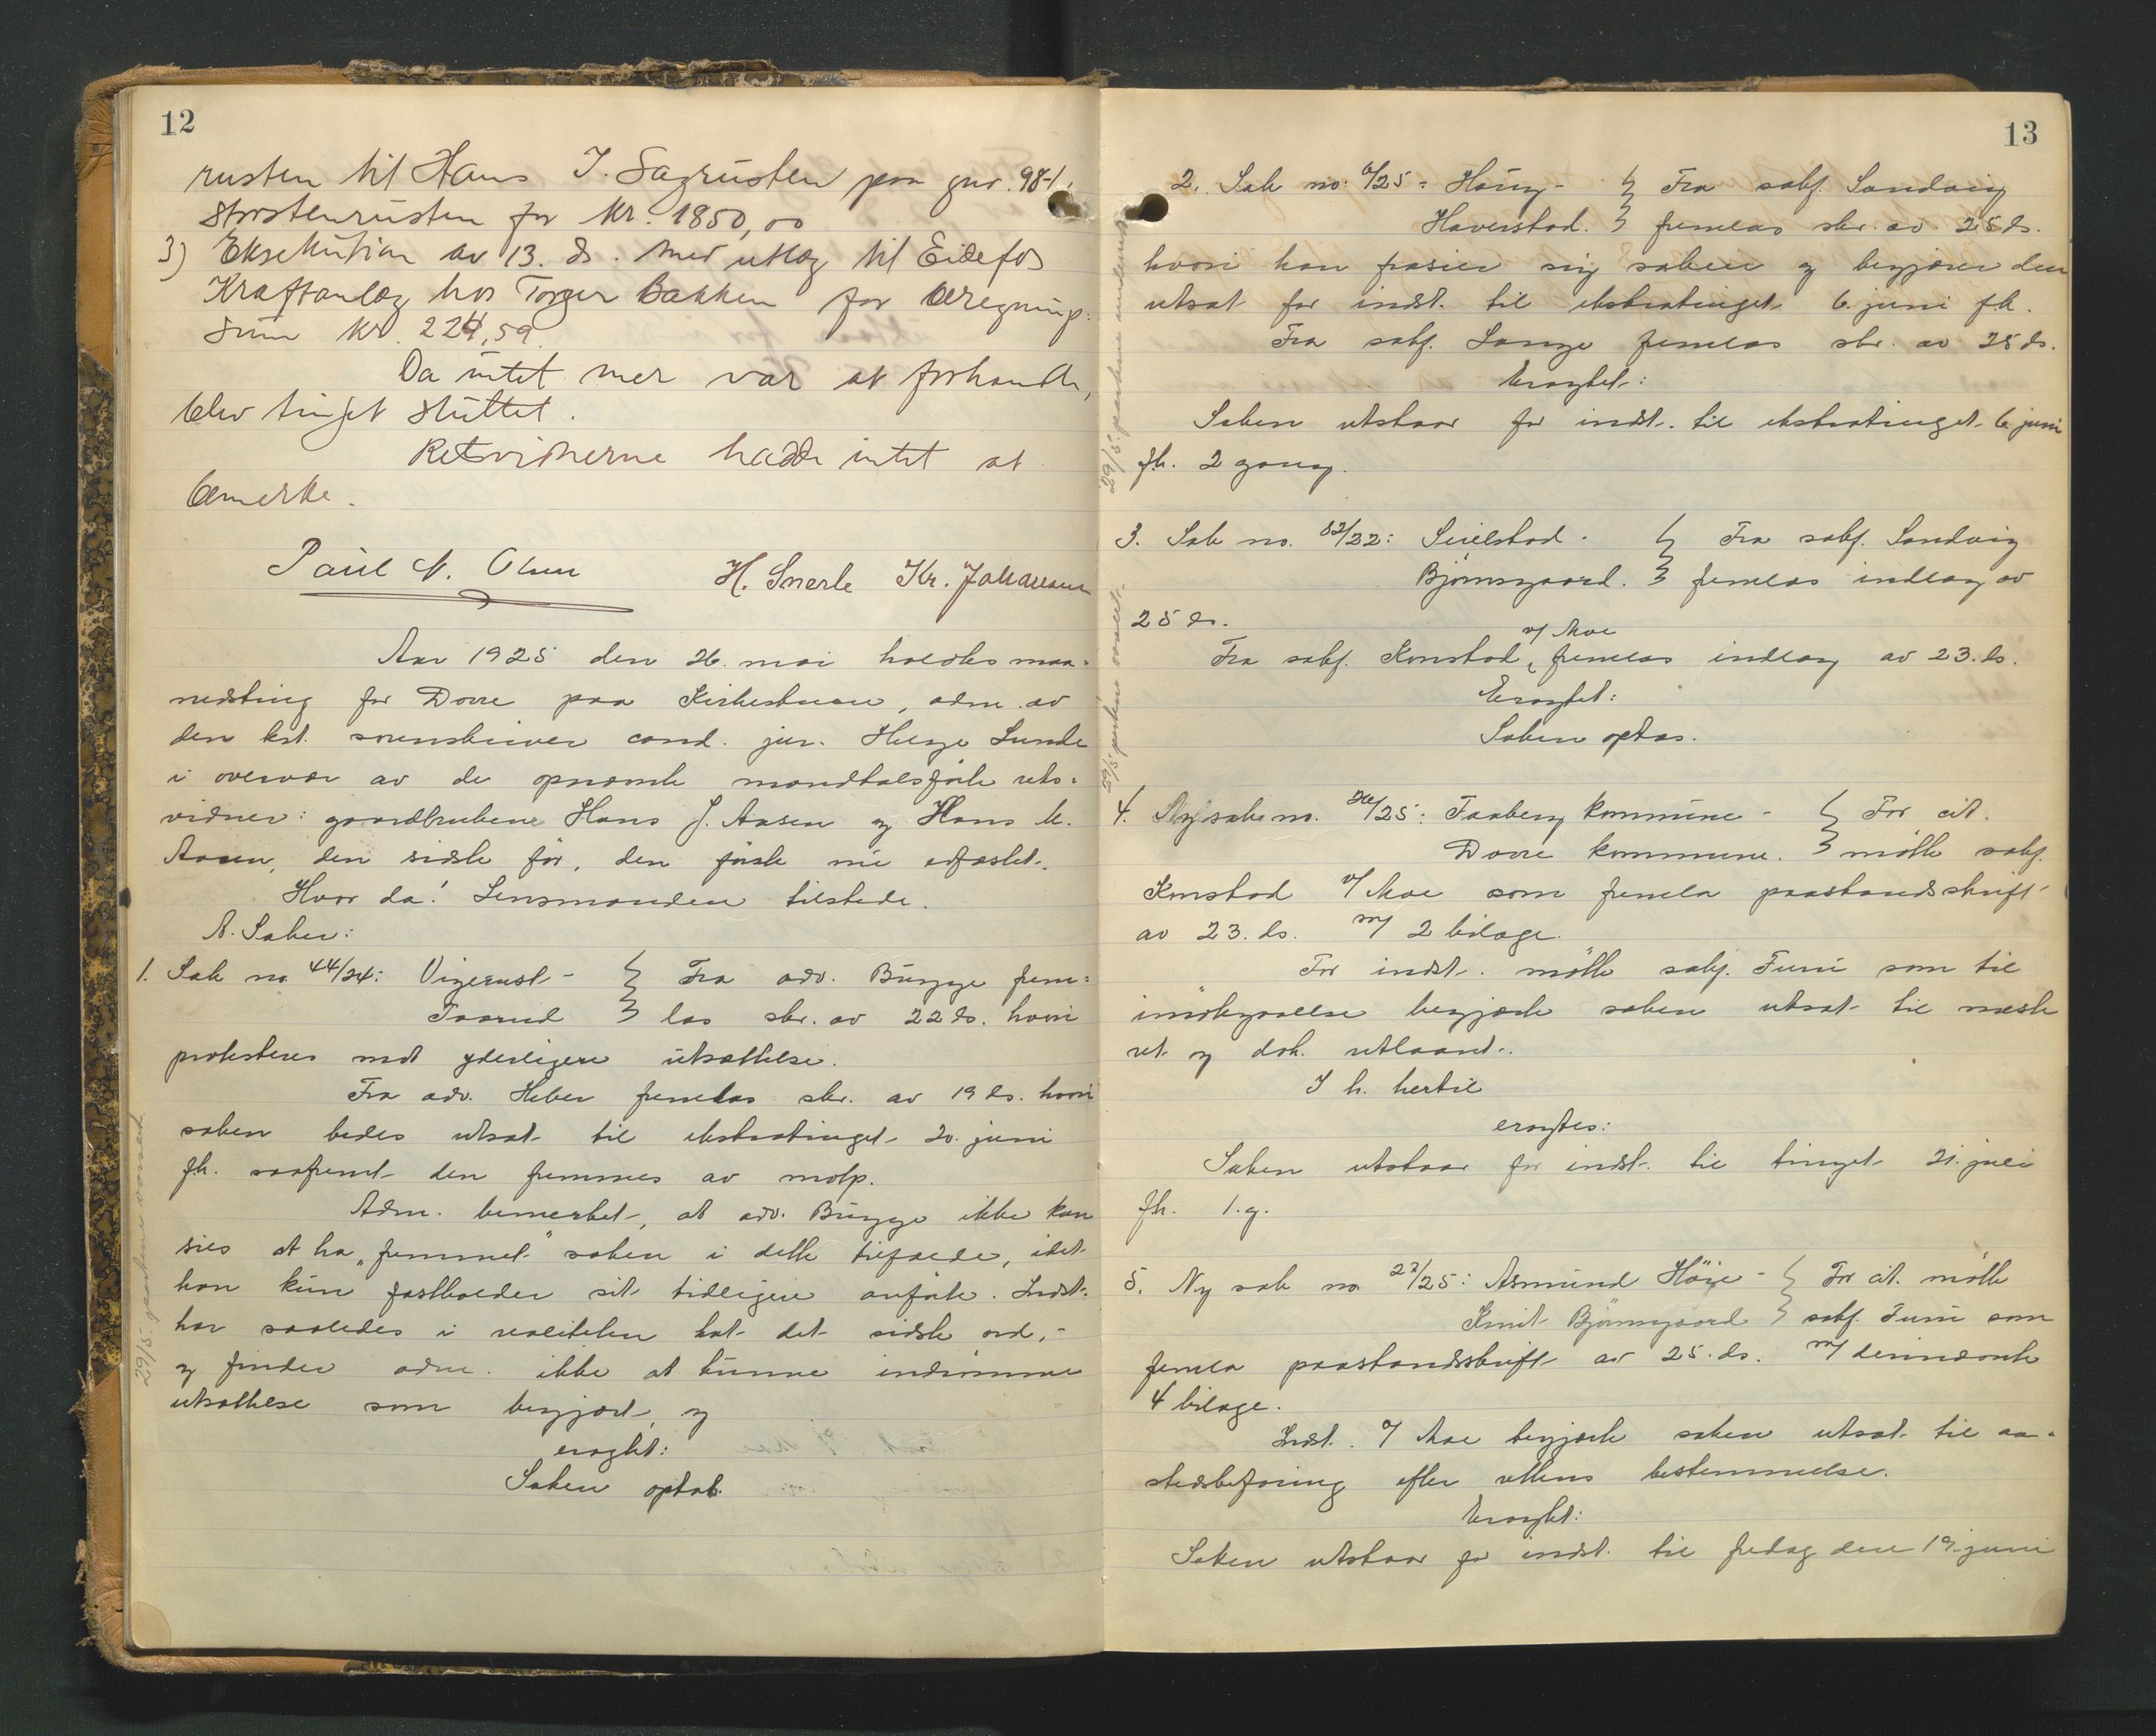 12
rusten til Hans J. Sagrusten paa gnr. 98-1,
Storstenrusten for kr. 1850,00
3) Eksekution av 13. ds. med utlæg til Eidefos
Kraftanlæg hos Torger Bakken for beregning:
sum kr. 224,59.
Da intet mer var at forhandle,
blev tinget sluttet.
Retsvidnerne hadde intet at
bemerke.
Paul N. Olsen H. Snerle Kr. Johansen
Aar 1925 den 26. mai holdtes maa=
nedsting for Dovre paa Kirkestuen, adm. av
den kst. sorenskriver cand. jur. Helge Lunde
i overvær av de opnævnte mandtalsførte rets=
vidner: gaardbrukerne Hans J. Aasen og Hans M.
Aasen, den sidste før, den første nu edfæstet.
Hvor da: Lensmanden tilstede.
A. Saker:
1. Sak no 44/24: Vigerust -
Taarud
Fra adv. Bugge frem=
las skr. av 22 ds. hvori
protesteres mot yderligere utsættelse.
Fra adv. Heber fremlas skr. av 19 ds. hvori
saken bedes utsat til ekstratinget 20. juni
fh. saafremt den fremmes av motp.
Adm. bemerket, at adv. Bugge ikke kan
sies at ha „fremmet" saken i dette tilfælde, idet
han kun fastholder sit tidligere anførte. Indst.
har saaledes i realiteten hat det sidste ord, -
og finder adm. ikke at kunne indrømme
utsættelse som begjært, og
eragtet:
Saken optat.
29/5 parterne varslet
13
2. Sak no: 6/25 = Haug -
Haverstad.
Fra sakf. Sandvig
fremlas skr. av 25 ds.
hvori han frasier sig saken og begjærer den
utsat for indst. til ekstratinget 6. juni fh.
Fra sakf. Lange fremlas skr. av 25 ds.
Eragtet:
Saken utstaar for indst. til ekstratinget 6. juni
fh. 2 gang.
3. Sak no. 82/22: Seielstad -
Bjørnsgaard.
Fra sakf. Sandvig
fremlas indlæg av
25 ds.
Fra sakf. Konstad v/ Moe fremlas indlæg av 23. ds.
Eragtet:
Saken optas.
4. Ny sak no. 26/25: Faaberg kommune -
Dovre kommune.
For cit.
møtte sakf.
Konstad v/ Moe som fremla paastandsskrift
av 23. ds. m/ 2 bilage.
For indst. møtte sakf. Tuni som til
imøtegaaelse begjærte saken utsat til næste
ret og dok. utlaant.
I h. hertil
eragtes:
Saken utstaar for indst. til tinget 21. juli
fh. 1. g.
5. Ny sak no 27/25: Asmund Høye -
Knut Bjørnsgaard
For cit. møtte
sakf. Tuni som
fremla paastandsskrift av 25. ds. m/ deriinævnte
4 bilage.
Indst. v/ Moe begjærte saken utsat til aa=
stedsbefaring efter rettens bestemmelse.
Eragtet:
Saken utstaar for indst. til fredag den 19. juni
29/5 parterne underrettet
29/5 parterne varslet